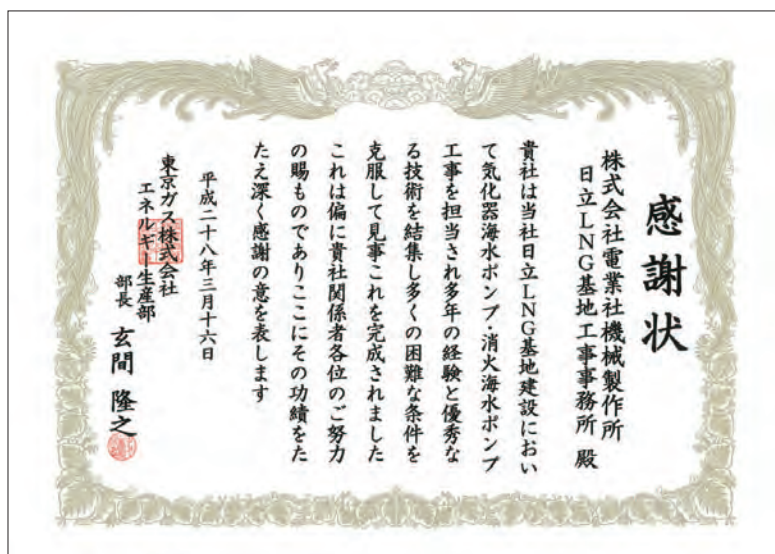 感謝状
株式会社電業社機械製作所
日立LNG基地工事事務所 殿
貴社は当社日立LNG基地建設におい
て気化器海水ポンプ・消火海水ポンプ
工事を担当され多年の経験と優秀な
る技術を結集し多くの困難な条件を
克服して見事これを完成されました
これは偏に貴社関係者各位のご努力
の賜ものでありここにその功績をた
たえ深く感謝の意を表します
平成二十八年三月十六日
東京ガス株式会社
エネルギー生産部
部長 玄間 隆之